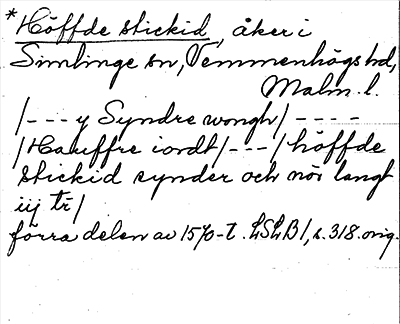 *Höffde stickid, åker i
Simlinge sn, Vemmenhögs hd,
Malm. l.
/--- y Syndre wongh/ ----
/Hauffre iordt/---/höffde
stickid synder och nör langt
iij tr/
förra delen av 1570-t. LSLB1, s. 318. orig.